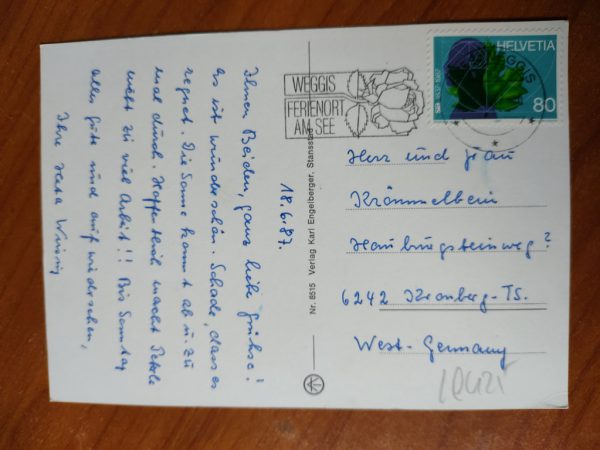 18.6.87.
Ihnen Beiden, ganz liebe Grüsse!
Es ist wunderschön. Schade, dass es
regnet. Die Sonne kommt ab u. zu
mal durch. Hoffentlich macht
nicht zu viel Arbeit!!! Bis Sonntag
alles Gute und auf wiedersehen,
Ihre
Nr. 8515 Verlag Karl Engelberger, Stansstad
WEGGIS
FERIENORT
AM SEE
HELVETIA
80
WEGGIS
Herr und Frau
Krömmelbein
Hainburgsteinweg?
6242 Kronberg-TS.
West-Germany